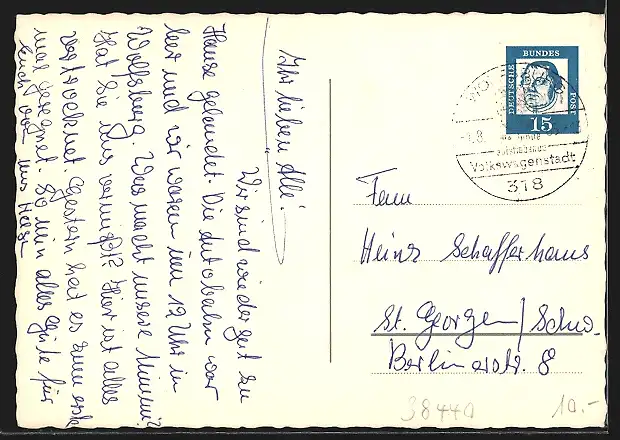 Ihr lieben Alle!
Wir sind wieder gut zu
Hause gelandet. Die Autobahn war
leer und wir waren um 12 Uhr in
Wolfsburg. Was macht unsere Mimmi?
Hat Sie uns vermißt? Hier ist alles
vertrocknet. Gestern hat es zum erste
mal geregnet. So nun alles Gute für
Euch von uns
DEUTSCHE BUNDES POST
15
Volkswagenstadt
318
Fam
Heinz Schafferhaus
St. Georgen/Schw.
Berlinerstr. 8
38440
10.-